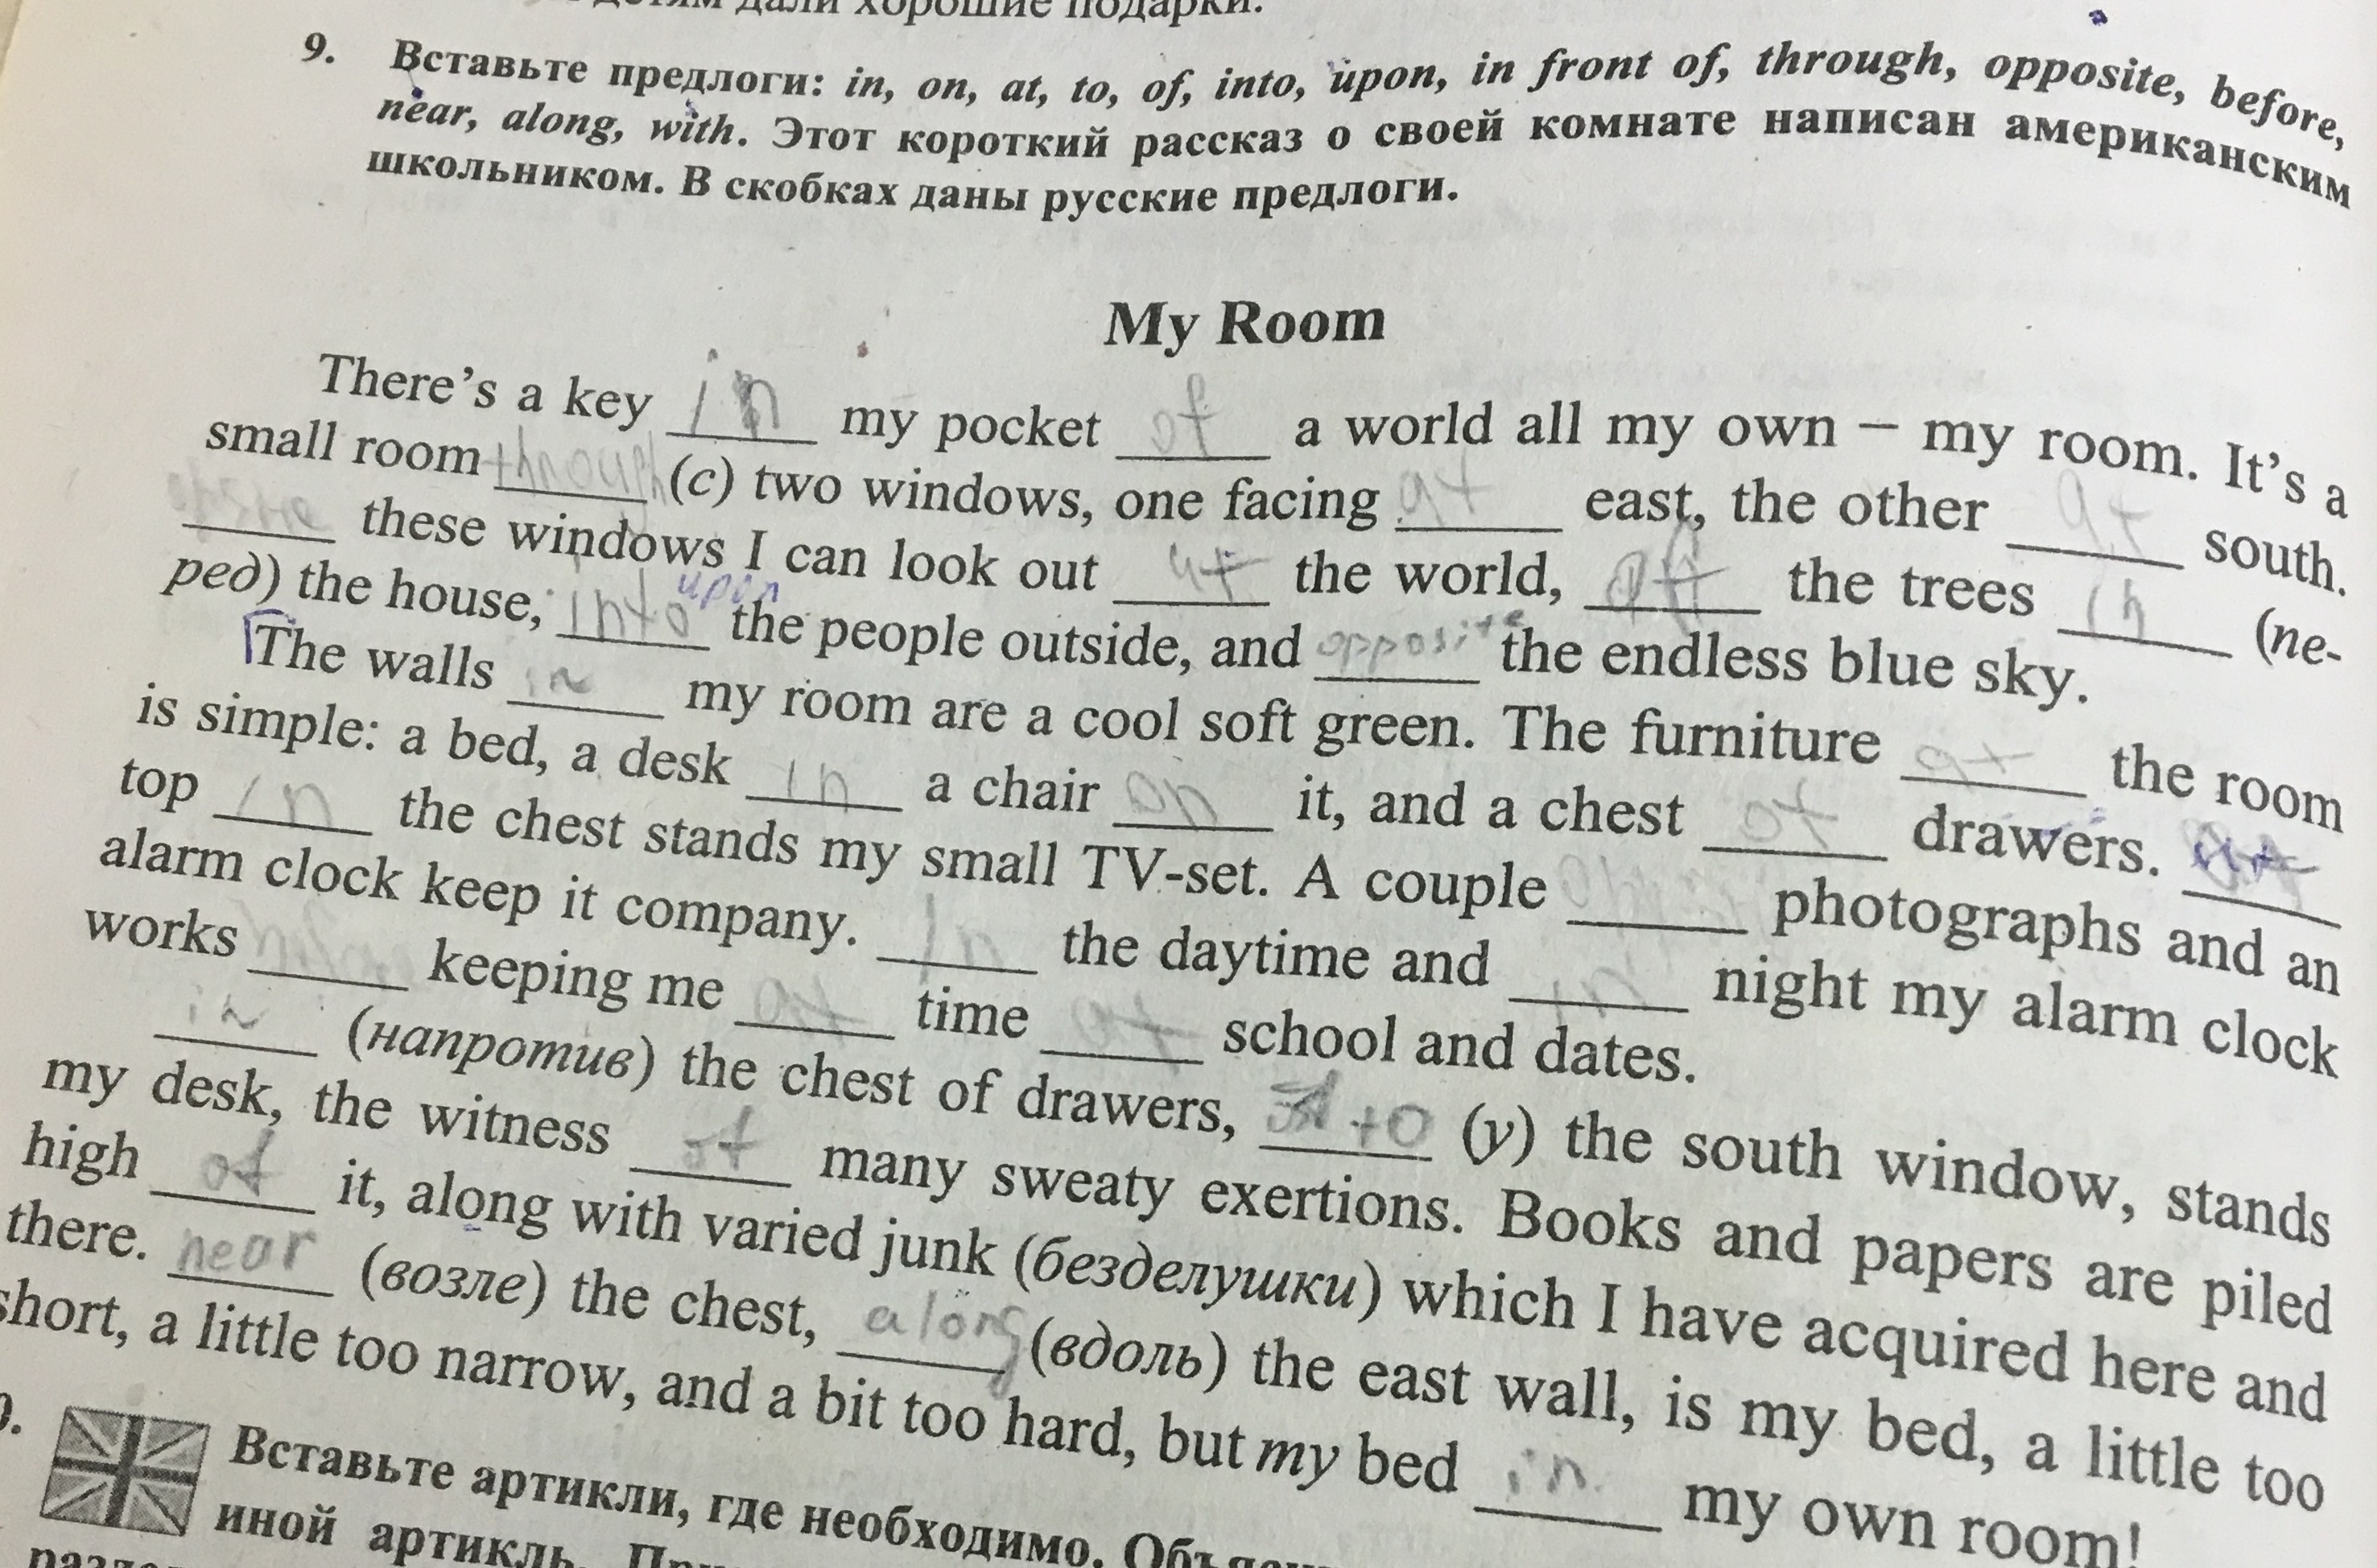 дали хорошие подарки.
9. Вставьте предлоги: in, on, at, to, of, into, upon, in front of, through, opposite, before,
near, along, with. Этот короткий рассказ о своей комнате написан американским
школьником. В скобках даны русские предлоги.
My Room
There's a key in my pocket of a world all my own – my room. It's a
small room through (с) two windows, one facing at east, the other at south.
these windows I can look out at the world, the trees in (пе-
ред) the house, into upon the people outside, and opposite the endless blue sky.
The walls in my room are a cool soft green. The furniture at the room
is simple: a bed, a desk in a chair on it, and a chest of drawers. At
top in the chest stands my small TV-set. A couple photographs and an
alarm clock keep it company. In the daytime and in night my alarm clock
works keeping me to time at school and dates.
in (напротив) the chest of drawers, to (у) the south window, stands
my desk, the witness of many sweaty exertions. Books and papers are piled
high of it, along with varied junk (безделушки) which I have acquired here and
there. near (возле) the chest, along (вдоль) the east wall, is my bed, a little too
short, a little too narrow, and a bit too hard, but my bed in my own room!
Вставьте артикли, где необходимо.
иной артикль.